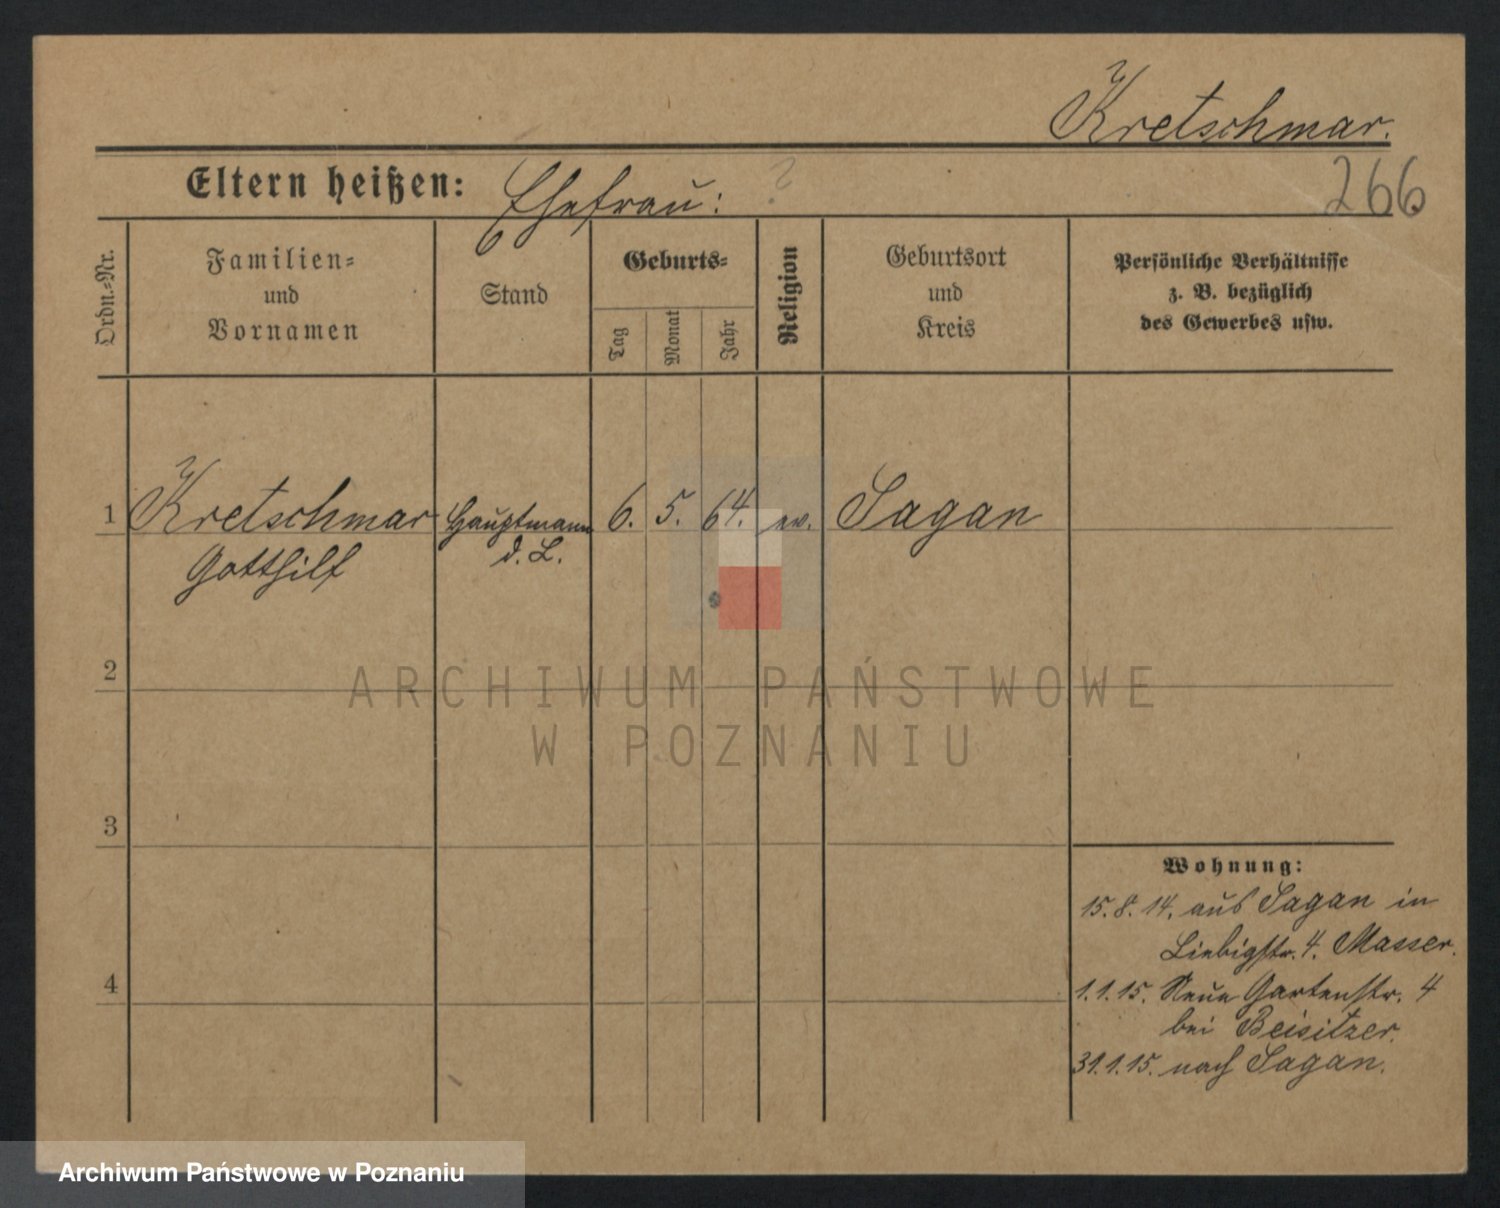 Kretschmar.
266
Eltern heißen: Ehefrau: ?
Ordn.-Nr.
Familien-
und
Vornamen
Stand
Geburts-
Tag
Monat
Jahr
Religion
Geburtsort
und
Kreis
Persönliche Verhältnisse
z. B. bezüglich
des Gewerbes usw.
1 Kretschmar Hauptmann 6. 5. 64. ev. Sagan
Gotthilf d. L.
2
ARCHIWUM PAŃSTWOWE
W POZNANIU
3
Wohnung:
15.8.14. aus Sagan in
Liebigstr. 4. Masser.
4
1.1.15. Neue Gartenstr. 4
bei Beisitzer.
31.1.15. nach Sagan.
Archiwum Państwowe w Poznaniu